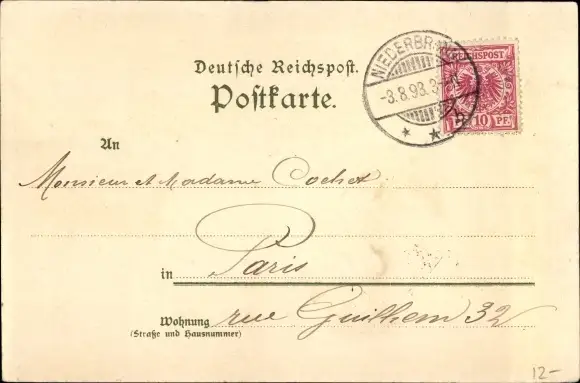 Deutsche Reichspost.
Postkarte.
NIEDERBRONN
-3.8.98.3-4N
REICHSPOST
10 10 PF.
An
Monsieur et Madame Cochet
in Paris
Wohnung rue Guilhem 32
(Straße und Hausnummer)
12-